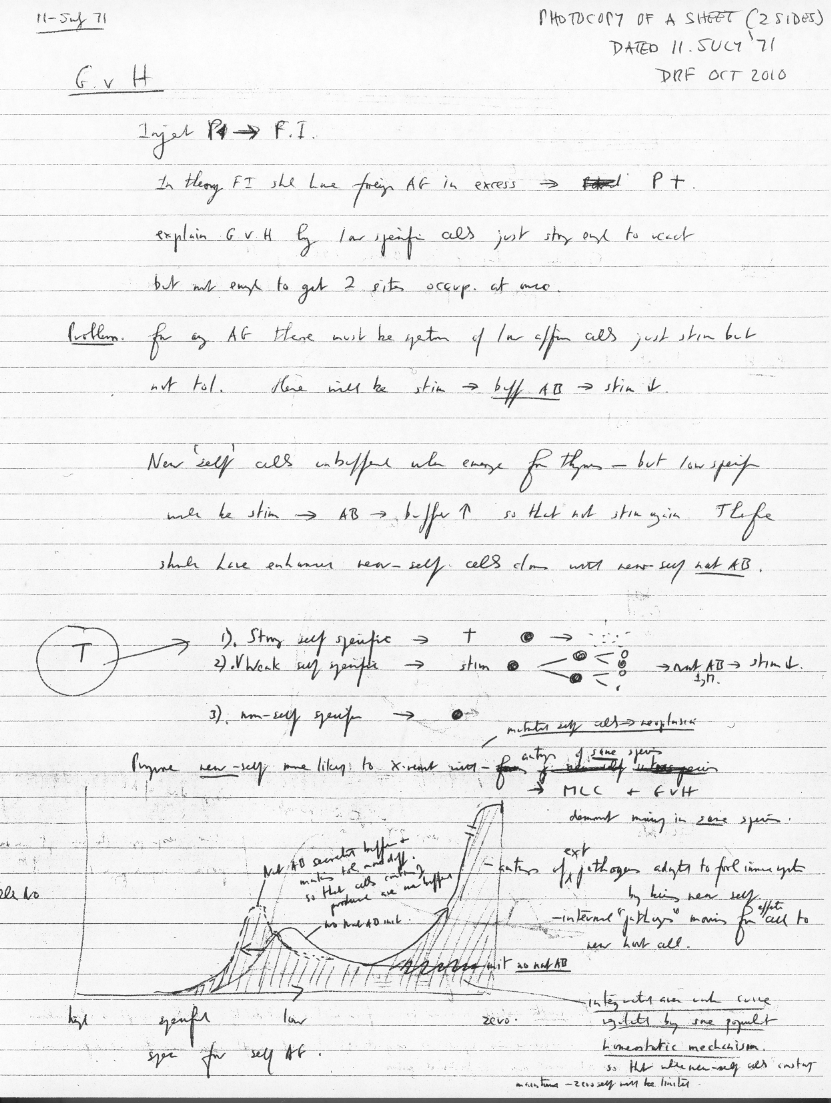 11-July 71
PHOTOCOPY OF A SHEET (2 SIDES)
DATED 11. JULY '71
DRF OCT 2010
G. v H
Inject P → F.I.
In theory FI shd have foreign AG in excess → P †.
explain G v H by low specific cells just strong enough to react
but not enough to get 2 sites occup. at once.
Problem. for any AG there must be spectrum of low affin cells just stim but
not tol. Here will be stim → buff AB → stim ↓.
New 'self' cells unbuffered when emerge from thymus – but low specific
will be stim → AB → buffer ↑ so that not stim again Therefore
should have enhanced near-self cells clones with near-self nat AB.
T
1). Strong self specific → †
2). V Weak self specific → stim → nat AB → stim ↓.
IgM.
3). non-self specific →
mutated self cells → neoplasia
Presume near-self more likely to X-react with – antigs of same species
→ MLC + GvH
demonst many in same species.
Nat AB secreted buffers +
makes tol more diff.
so that cells contin
produce are in buffer
No Nat AB
– antigs of ext pathogens adapts to fool immune system
by being near self.
– internal "pathogens" moving from affected cell to
new host cell.
no nat AB
high specific low zero.
spec for self AG.
integrates area under curve
regulates by some populat
homeostatic mechanism.
so that when near-self cells constant
maintained – zero self will be limited.